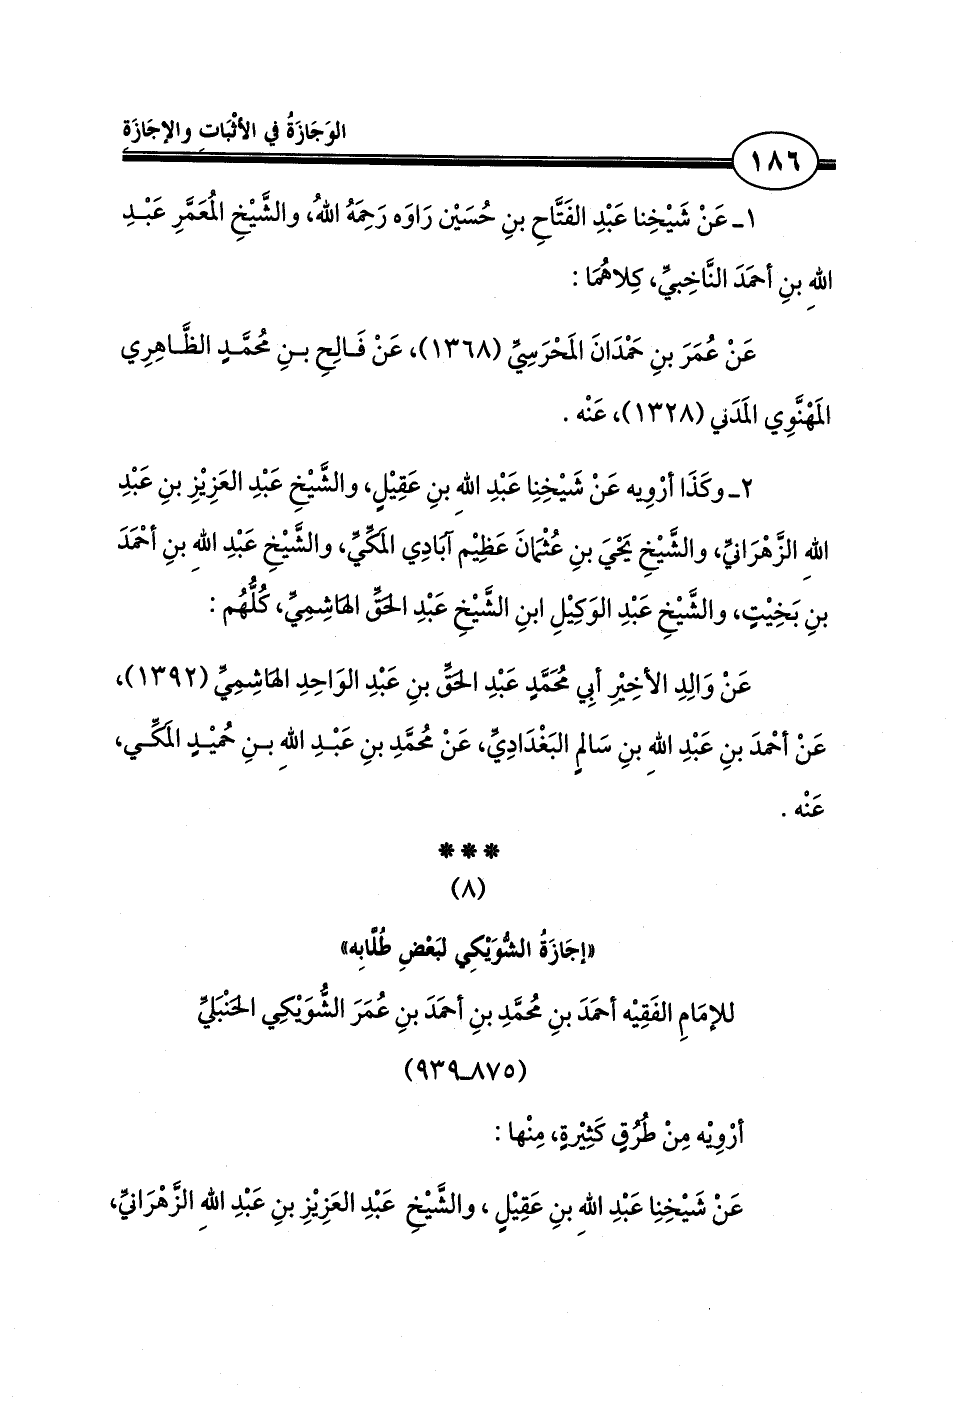 الوَجَازَةُ في الأثْبَاتِ والإجَازَةِ
١٨٦
١ـ عَنْ شَيْخِنا عَبْدِ الفَتَّاحِ بنِ حُسَيْن رَاوَه رَحِمَهُ اللهُ، والشَّيْخِ المُعَمَّرِ عَبْدِ
اللهِ بنِ أحمَدَ النَّاخِبيِّ، كِلاهُمَا :
عَنْ عُمَرَ بنِ حَمْدَانَ المَحْرَسِيِّ (١٣٦٨)، عَنْ فَالِحِ بنِ مُحمَّدٍ الظَّاهِرِي
المَهْنَّوِي المَدَني (١٣٢٨)، عَنْه .
٢ـ وكَذَا أرْوِيه عَنْ شَيْخِنَا عَبْدِ اللهِ بنِ عَقِيْلٍ، والشَّيْخِ عَبْدِ العَزِيْزِ بنِ عَبْدِ
اللهِ الزَّهْرَانيِّ، والشَّيْخِ يَحْيَ بنِ عُثْمَانَ عَظِيْم آبَادِي المَكِّيِّ، والشَّيْخِ عَبْدِ اللهِ بنِ أحْمَدَ
بنِ بَخِيْتٍ، والشَّيْخِ عَبْدِ الوَكِيْلِ ابنِ الشَّيْخِ عَبْدِ الحَقِّ الهَاشِمِيِّ، كُلُّهُم :
عَنْ وَالِدِ الأخِيْرِ أبِي مُحَمَّدٍ عَبْدِ الحَقِّ بنِ عَبْدِ الوَاحِدِ الهَاشِمِيِّ (١٣٩٢)،
عَنْ أحْمَدَ بنِ عَبْدِ اللهِ بنِ سَالمٍ البَغْدَادِيِّ، عَنْ مُحمَّدِ بنِ عَبْدِ اللهِ بنِ حُميْدٍ المَكِّي،
عَنْه .
***
(٨)
«إجَازَةُ الشُّوَيْكِي لبَعْضِ طُلَّابِه»
للإمَامِ الفَقِيْه أحمَدَ بنِ مُحمَّدِ بنِ أحمَدَ بنِ عُمَرَ الشُّوَيْكِي الحَنْبَليِّ
(٨٧٥ـ٩٣٩)
أرْوِيْه مِنْ طُرُقٍ كَثِيْرةٍ، مِنْها :
عَنْ شَيْخِنِا عَبْدِ اللهِ بنِ عَقِيْلٍ ، والشَّيْخِ عَبْدِ العَزِيْزِ بنِ عَبْدِ اللهِ الزَّهْرَانيِّ،